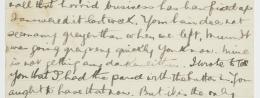 all that horrid business has how fixed up
I answered it last week. Your hair does not
seem any greyer than when we left, Mum it
was going grey very quickly you know. Mine
is not getting any darker either. I wrote to tell
you that I had the parcel with the hat in & you
ought to have that now. But it is the only